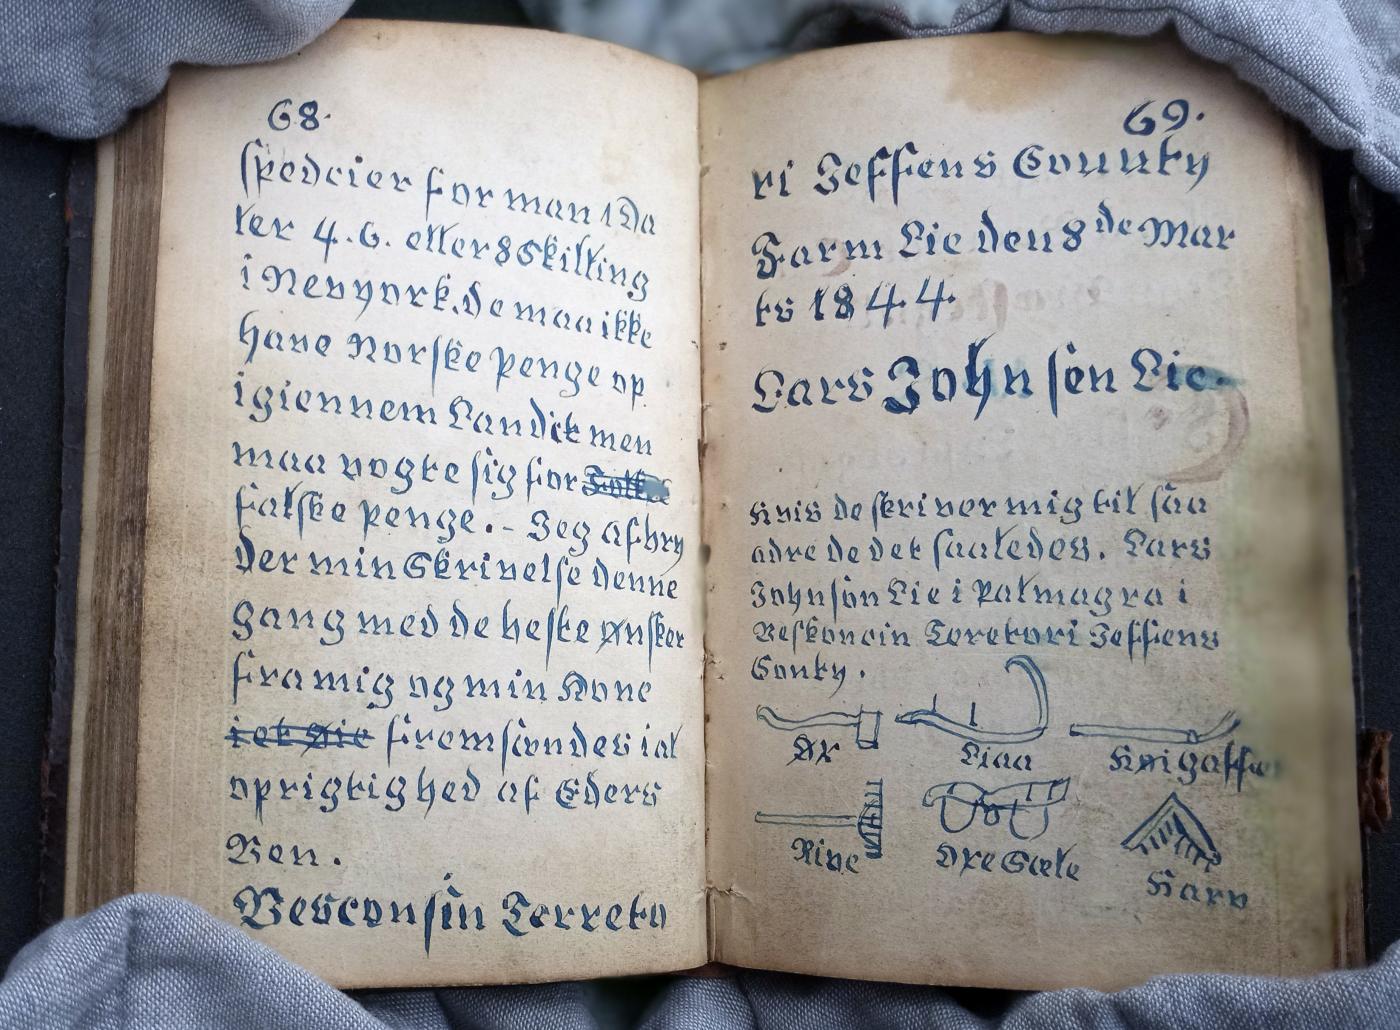 68.
spedeier for man 1 Da
ler 4.6. eller 8 Skilling
i Nevyork. De maa ikke
have Norske penge op
igiennem Landit men
maa vogte sig for
falske penge. - Jeg afbry
der min Skrivelse denne
gang med de beste Ønsker
fra mig og min Kone
fremsændes i al
oprigtighed af Eders
Ven.
Vesconsin Terreto
69.
ri Jeffens County
Farm Lie den 8de Mar
ts 1844.
Lars Johnsen Lie.
Hvis de skriver mig til saa
adre de det saaledes. Lars
Johnson Lie i Palmagra i
Veskoncin Teretori Jeffiens
Conty.
Øx
Liaa
Høigaffel
Rive
Oxe Sæle
Harv